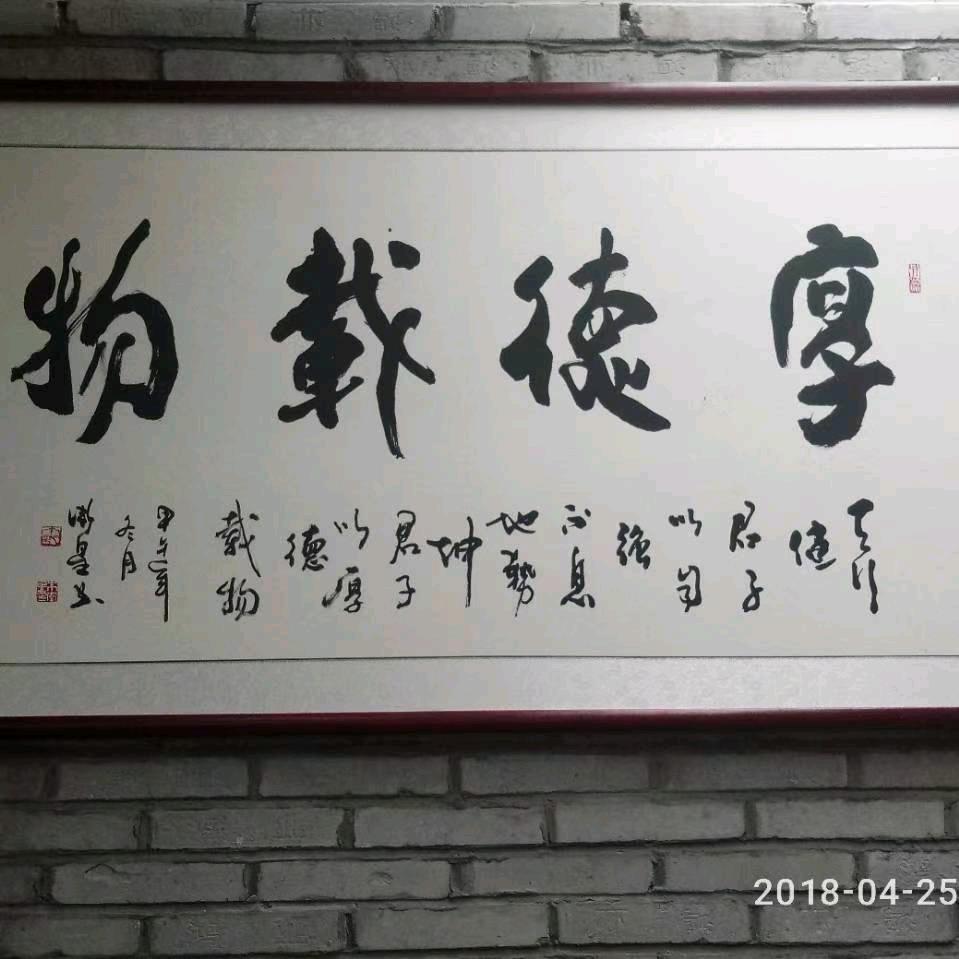 厚德載物
天行
健
君子
以自
強
不息
地势
坤
君子
以厚
德
載物
甲午年
冬月
书
2018-04-25